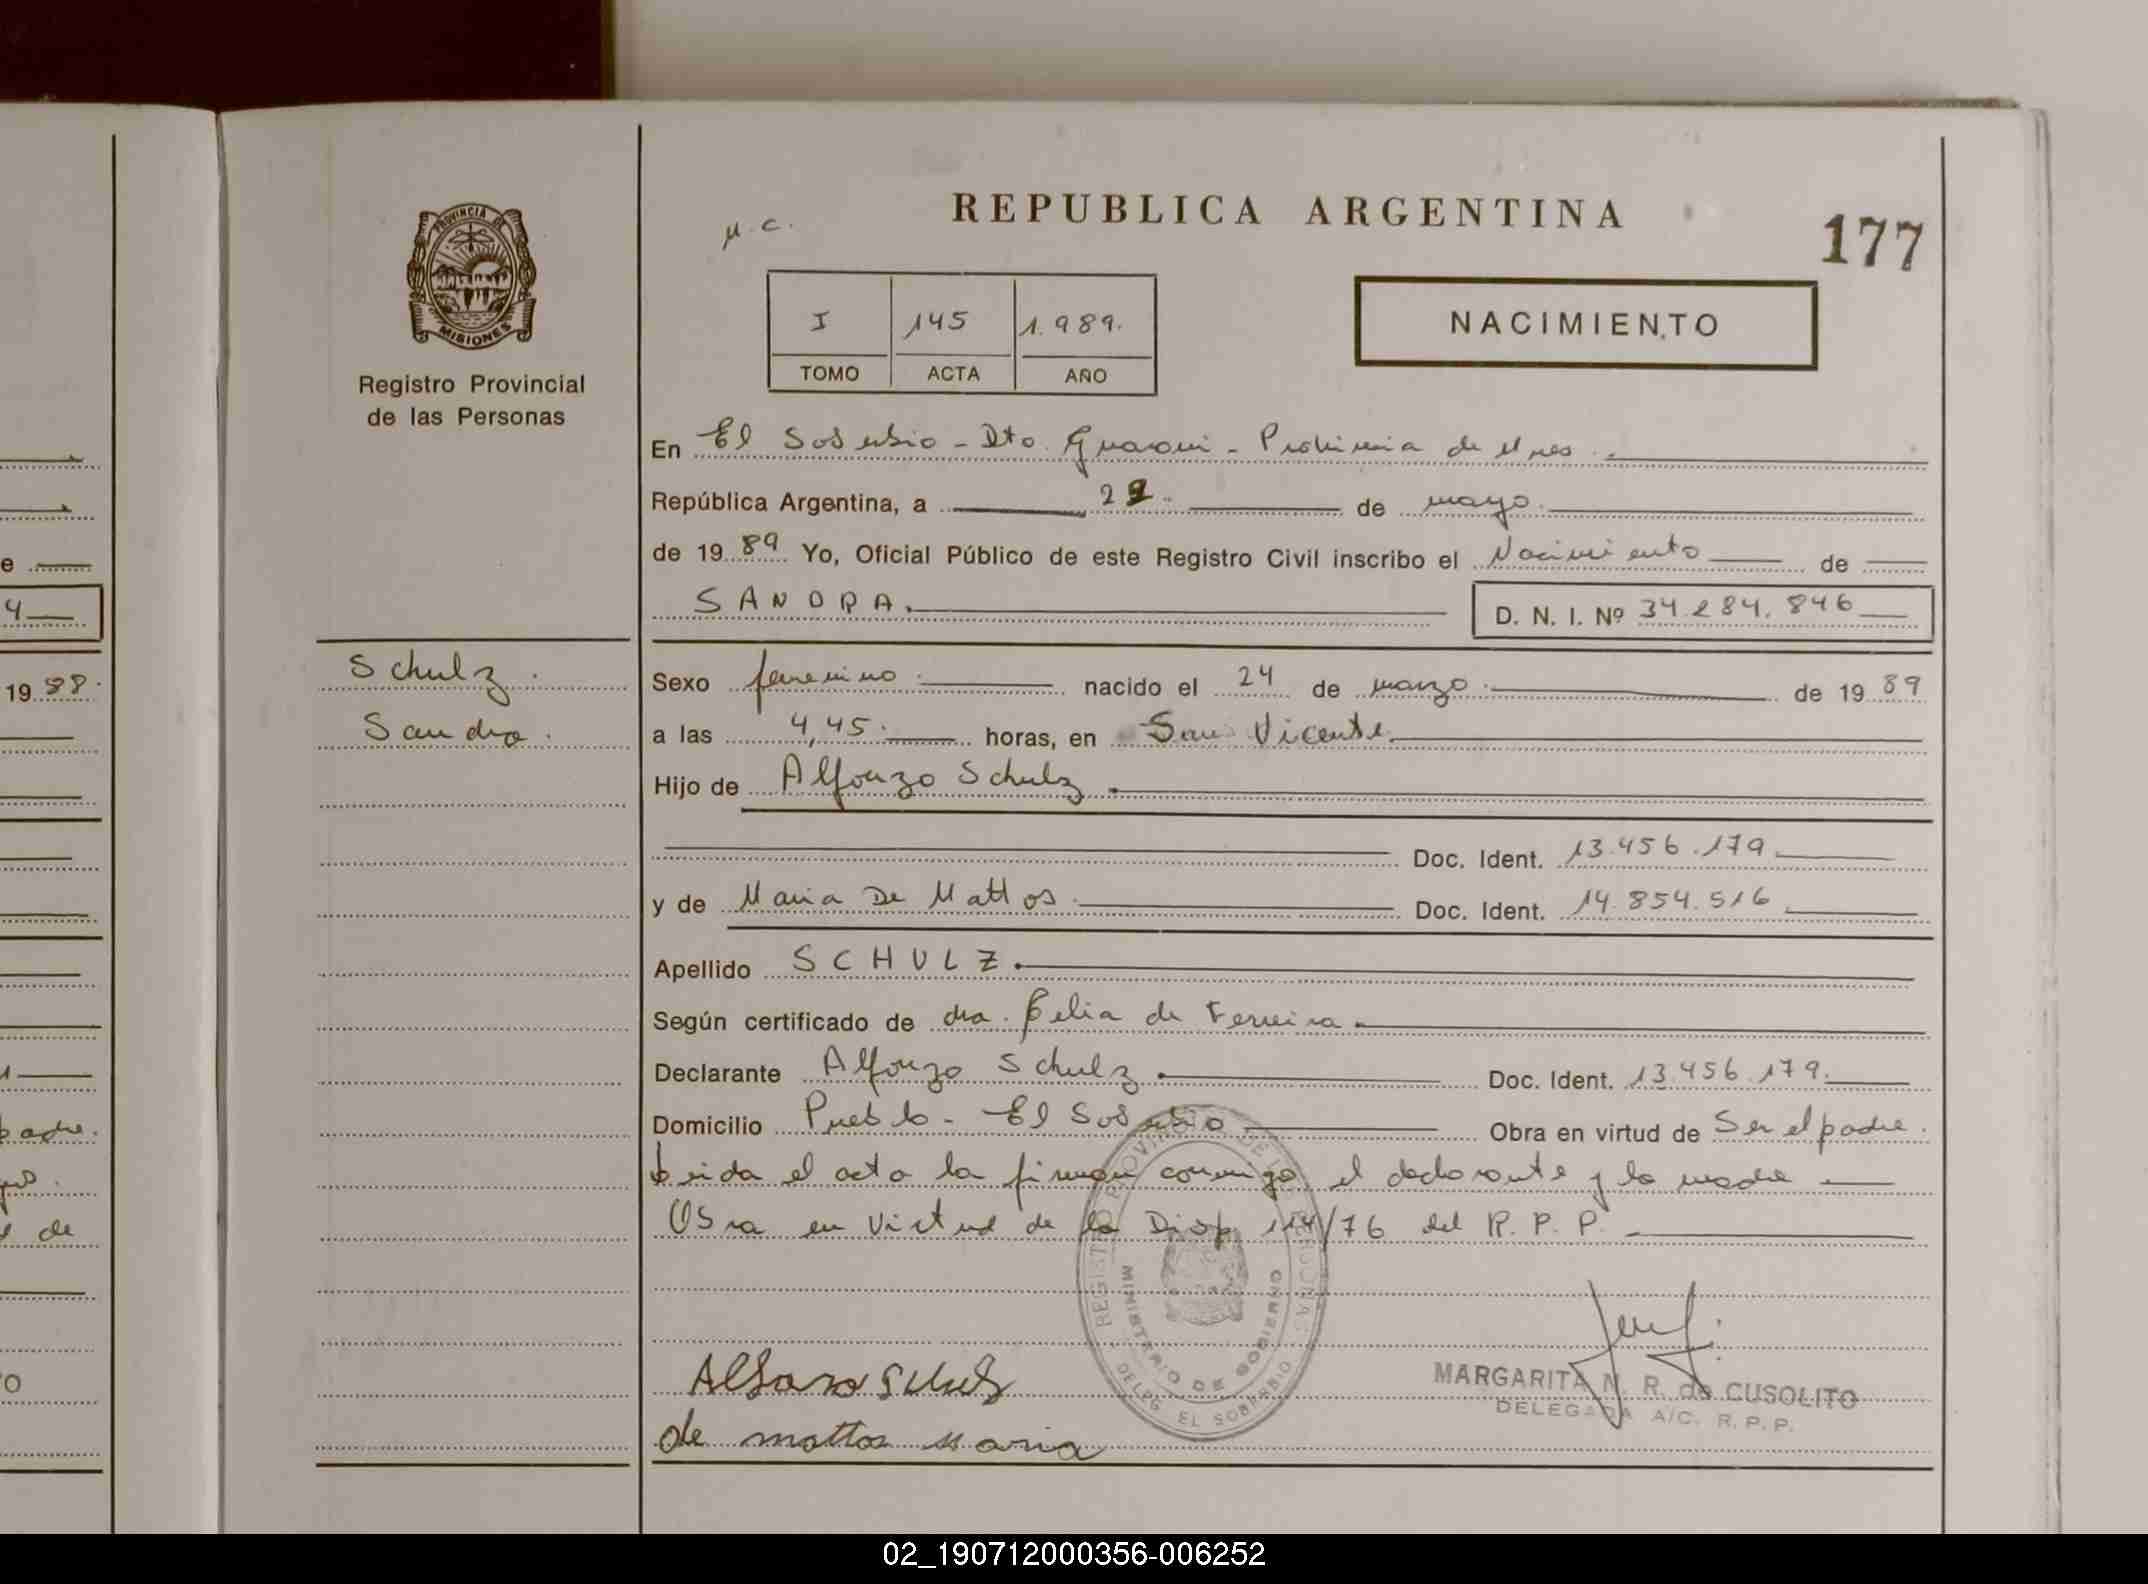 REPUBLICA ARGENTINA
177
PROVINCIA DE
MISIONES
Registro Provincial
de las Personas
I 145 1.989.
TOMO ACTA AÑO
NACIMIENTO
En El Soberbio - Dto. Guarani - Provincia de Mnes.
República Argentina, a 22 de mayo
de 1989 Yo, Oficial Público de este Registro Civil inscribo el Nacimiento de
SANDRA. D. N. I. Nº 34.284.846
Schulz.
Sandra.
Sexo femenino. nacido el 24 de marzo. de 1989
a las 4,45. horas, en San Vicente
Hijo de Alfonzo Schulz
Doc. Ident. 13.456.179
y de Maria De Mattos. Doc. Ident. 14.854.516
Apellido SCHULZ.
Según certificado de dra. Celia de Ferreira
Declarante Alfonzo Schulz Doc. Ident. 13.456.179.
Domicilio Pueblo - El Soberbio Obra en virtud de Ser el padre.
Leida el acta la firman conmigo el declarante y la madre
Obra en virtud de la Disp. 114/76 del R. P. P.
REGISTRO PROVINCIAL DE LAS PERSONAS
MINISTERIO DE GOBIERNO
DELEG. EL SOBERBIO
Alfonzo Schulz
de mattos maria
MARGARITA N. R. de CUSOLITO
DELEGADA A/C. R. P. P.
1988.
padre.
de
02_190712000356-006252